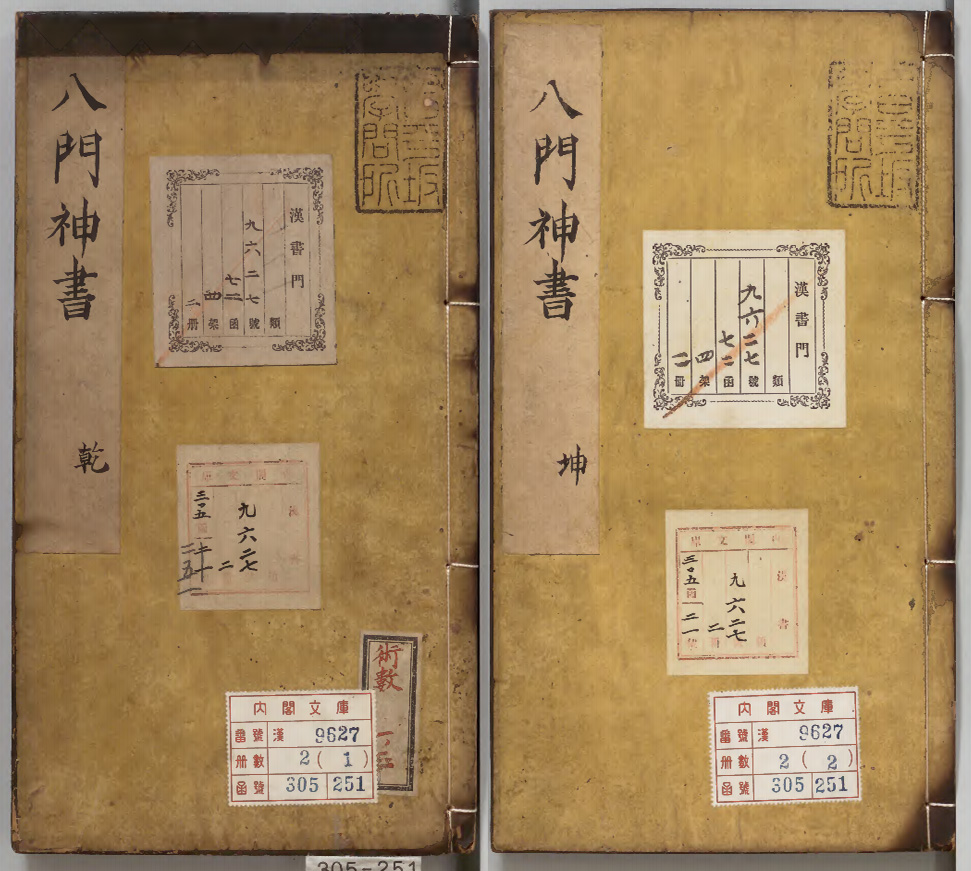 八門神書
乾
昌平坂
學問所
漢書門
類
九六二七號
七二函
四架
二冊
九六二七
二
三〇五
術數
內閣文庫
番號 漢 9627
冊數 2 ( 1 )
函號 305 251
305-251
八門神書
坤
昌平坂
學問所
漢書門
類
九六二七號
七二函
四架
二冊
漢書
九六二七
二
三〇五函
內閣文庫
番號 漢 9627
冊數 2 ( 2 )
函號 305 251